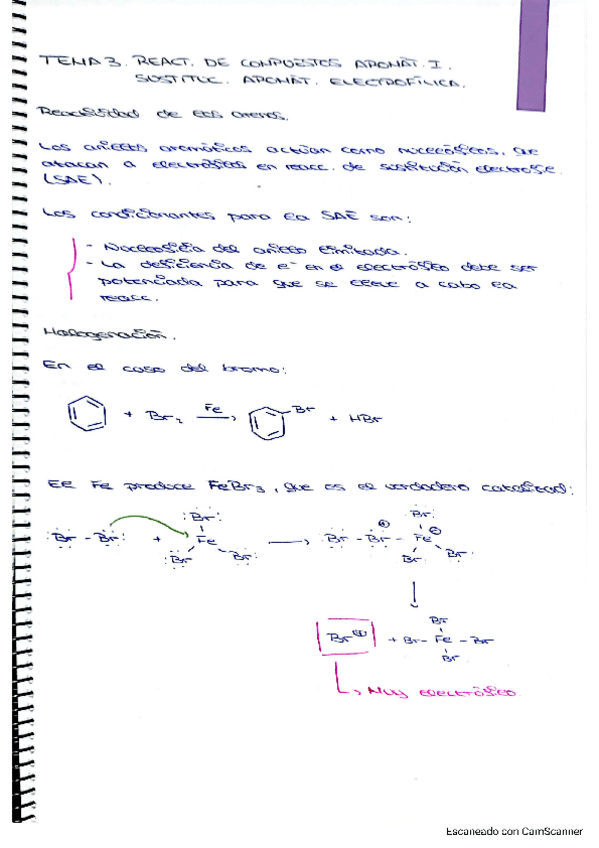 TEMA 3. REACT. DE COMPUESTOS AROMÁT. I.
SUSTITUC. AROMÁT. ELECTROFÍLICA.
Reactividad de los arenos.
Los anillos aromáticos actúan como nucleófilos, que
atacan a electrófilos en reacc. de sustitución electrof.
(SAE).
Los condicionantes para la SAE son:
- Nucleofilia del anillo limitada.
- La deficiencia de e⁻ en el electrófilo debe ser
potenciada para que se lleve a cabo la
reacc.
Halogenación.
En el caso del bromo:
+ Br₂ Fe → Br + HBr
El Fe produce FeBr₃, que es el verdadero catalizad:
:Br - Br: + :Br: Fe :Br Br: → :Br - Br ⊕ - Fe ⊖ Br: Br: Br:
Br ⊕ + Br - Fe - Br Br Br
↳ Muy electrófilo
Escaneado con CamScanner